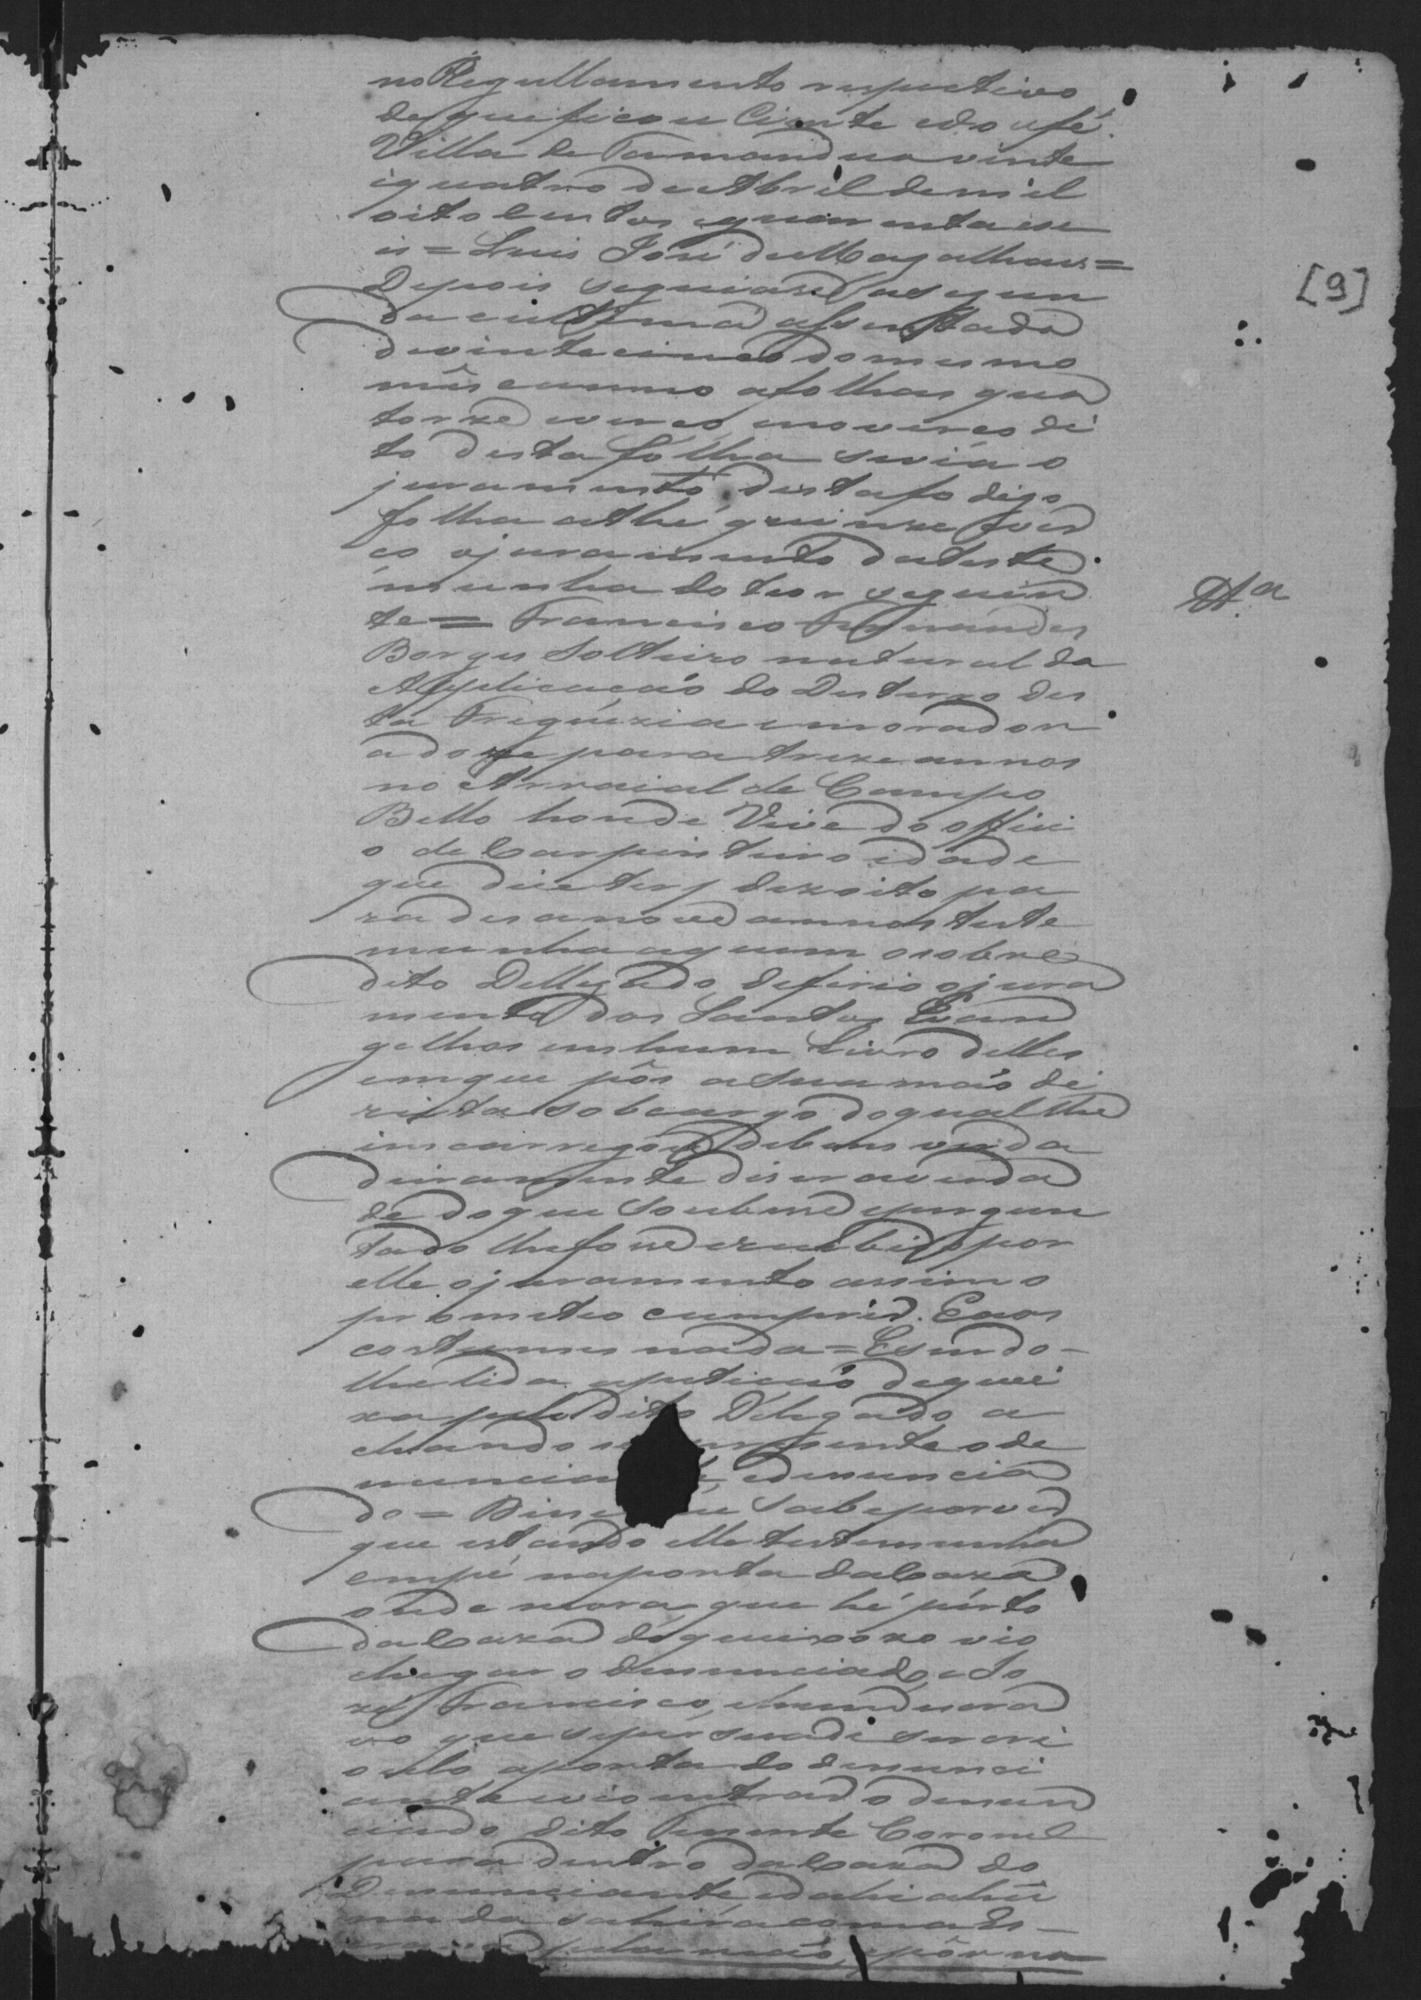 no Regullamento respectivo
de que ficou Ciente e do u fé.
Villa de Tamandua vinte
iquatro de Abril de mil
oito Centos e quarenta ese
is = Luis José de Magalhaes =
Depois seguiase a segun
da eultima assentada
de vinte cinco do mesmo
mês eanno afolhas qua
torze everço enoverço di
to desta fôlha sevia o
juramento desta fo digo
folha athé quinze ver
ço ojuramento da teste
munha do teor seguin
te = Francisco Fernandes
Borges Solteiro natural da
Applicacaõ do Desterro des
ta Freguezia emorador
a doze para treze annos
no Arraial de Campo
Bello honde Vive do offici
o de Carpinteiro idade
que dice ter dezoito pa
ra desanove annos teste
munha aquem osobre
dito Dellegado deferio ojura
mento dos Santos Evan
gelhos em hum Livro delles
emque pôs a Sua maõ di
reita sob cargo do qual lhe
incarregou debem verda
deiramente diser averda
de do que Soubese epergun
tado lhe fose erecebido por
elle ojuramento assim o
prometeo cumprir. Eaos
costumes nada = Esendo-
lhe lida apeticaõ dequei
xa pelo dito Delegado a
chando se presente ode
nuncia edenuncia
do = Dise que Sabe por ver
que estando elle testemunha
empé na porta da Caza
onde mora que hé pérto
da Caza do queixozo vio
chegar o denunciado e Jo
zé Francisco, ehum
vo que se persuadi ser cri
oulo aporta do denunci
ante evio entrar o denun
ciado dito Tenente Coronel
para dentro da Caza do
Denunciante edahi ahu
ma da sahira com a di
pela maõ, epôr na
[9]
Tt.ª